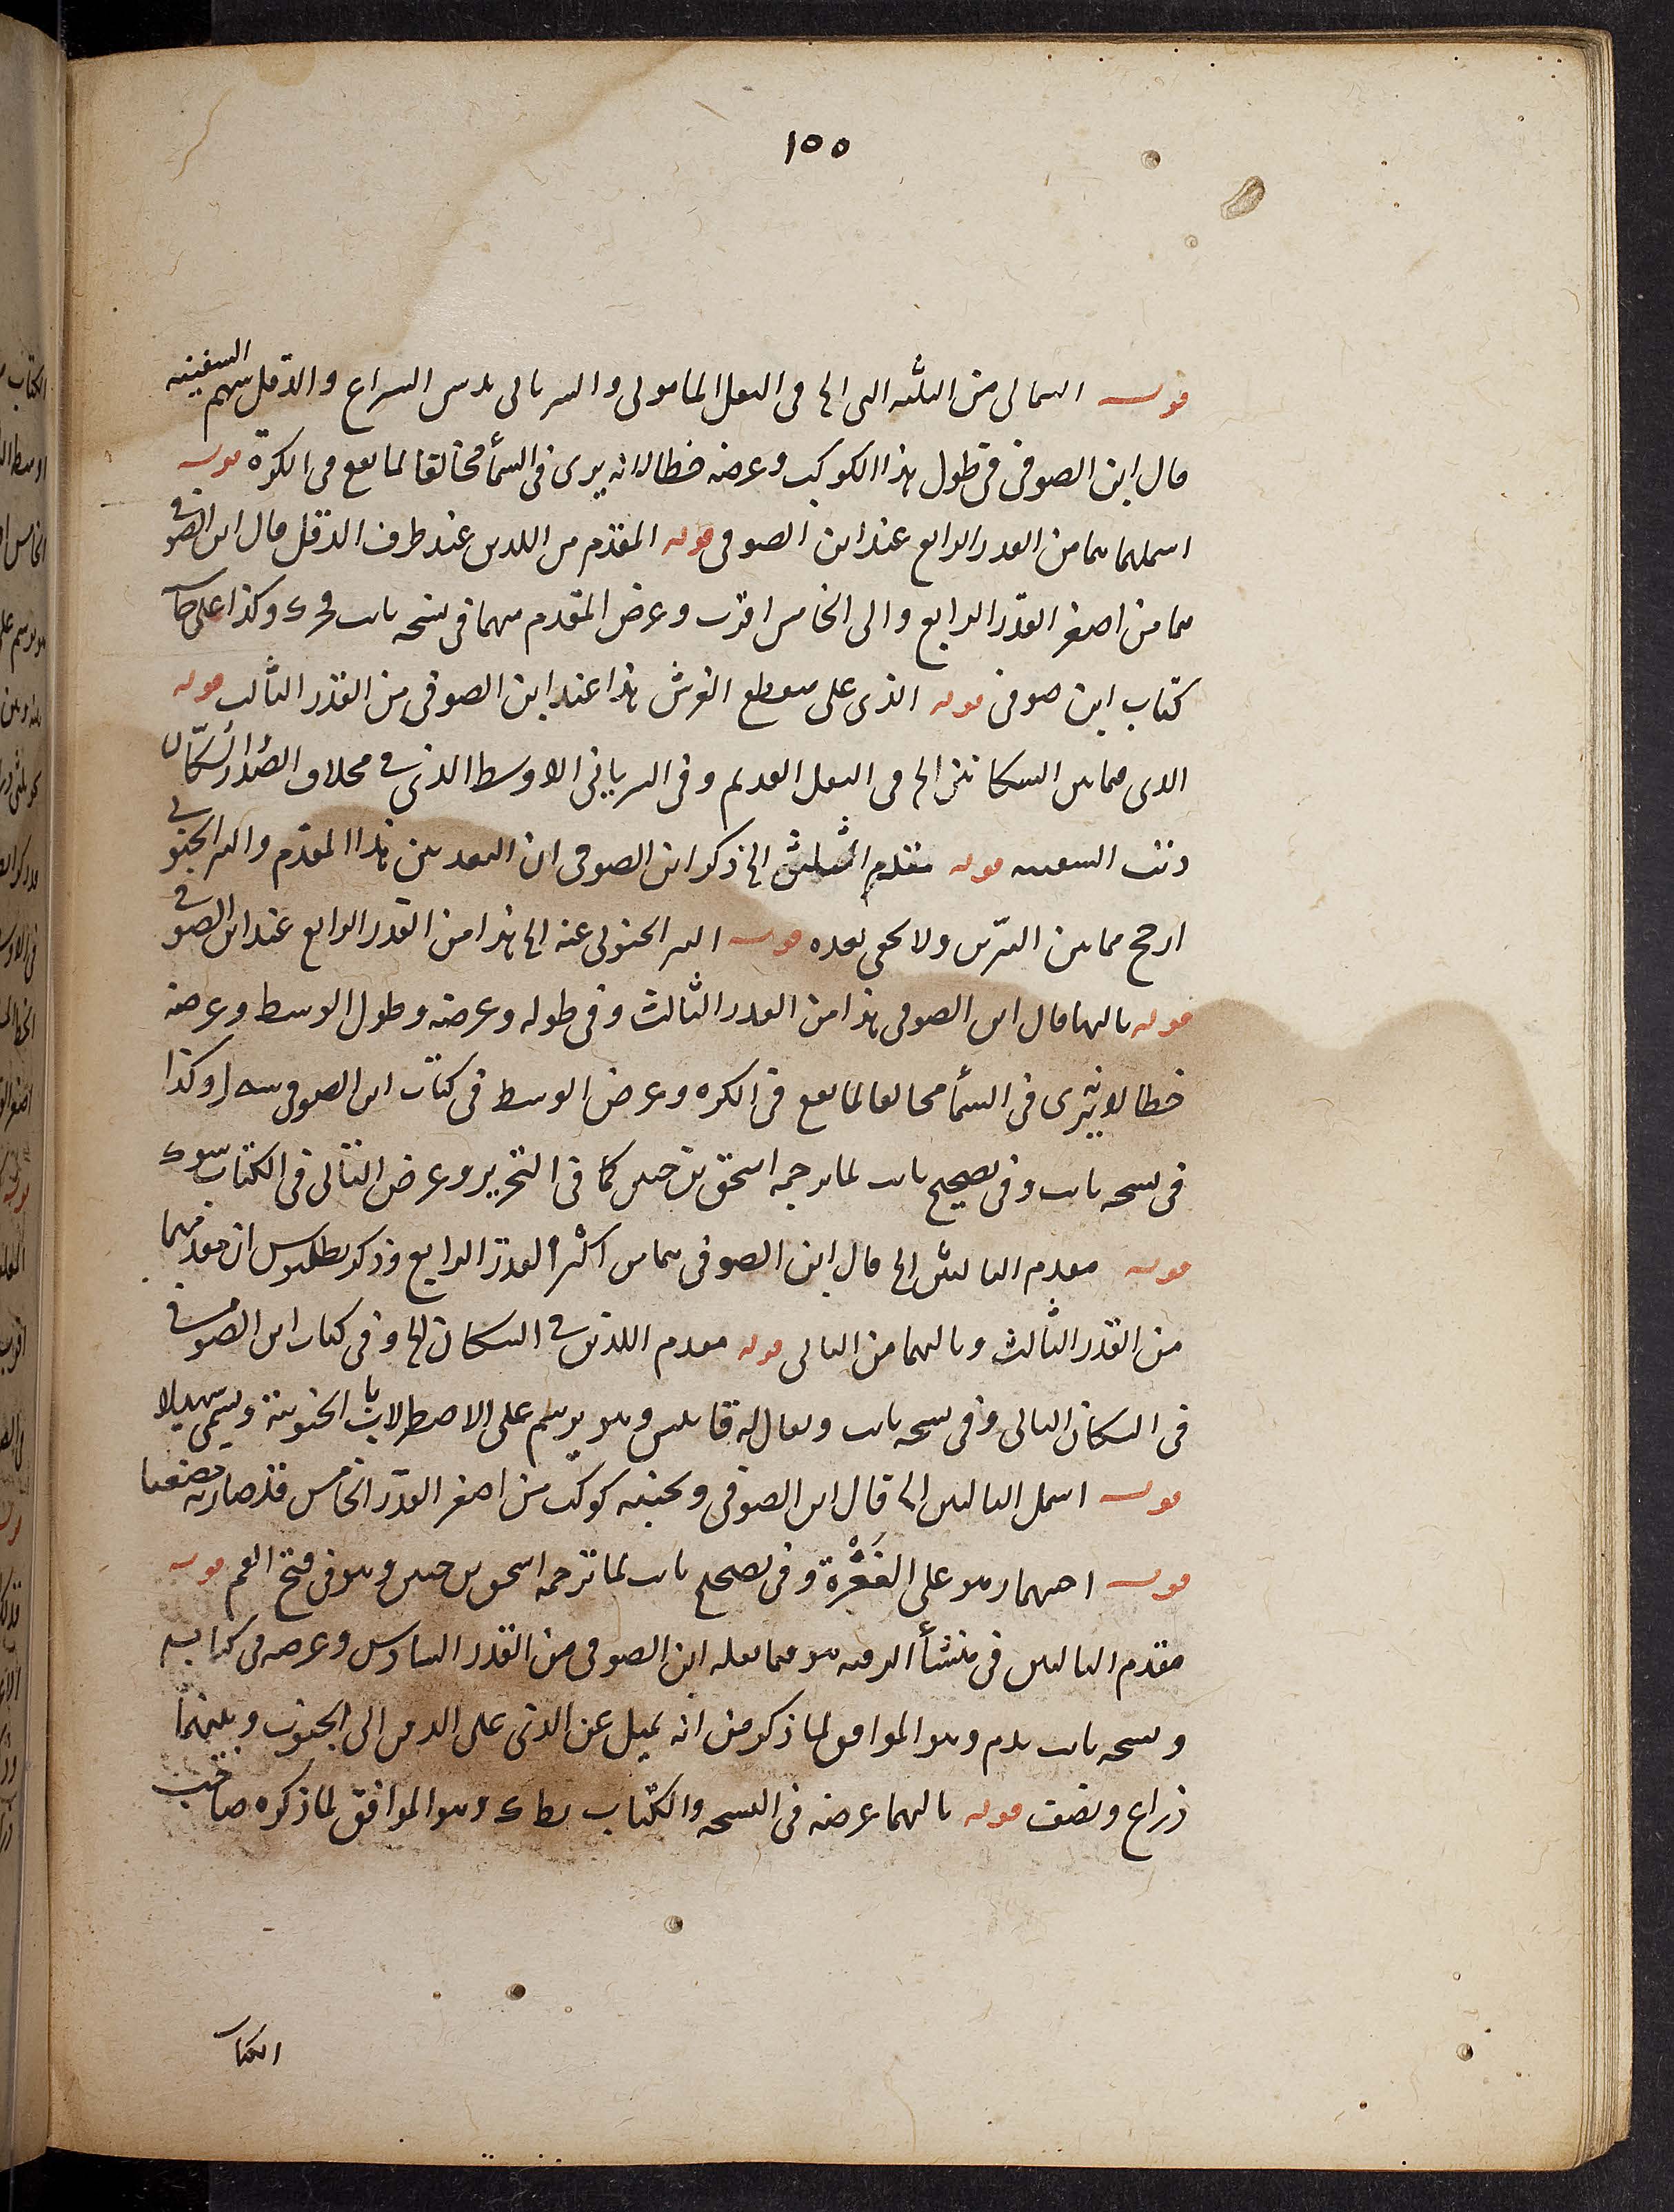 ١٥٥
قوله الشمالى من الثلثة التى الخ فى النقل المامونى والسريانى بدس الشراع والدقل سهم السفينه
قال ابن الصوفى فى طول هذا الكوكب وعرضه خطا لانه يرى فى السمأ مخالفا لما يقع فى الكرة قوله
اسملهما هما من القدر الرابع عند ابن الصوفى قوله المقدم من اللذين عند طرف الدقل قال ابن الصوفى
هما من اصغر القدر الرابع والى الخامس اقرب وعرض المقدم منهما فى نسخه ثابت وكذا على
كتاب ابن صوفى قوله الذى على مقطع الفرش هذا عند ابن الصوفى من القدر الثالث قوله
الذى فيما بين السكانين الخ فى النقل القديم وفى السريانى الاوسط الذى فى السكان
ذنب السفينه قوله متقدم الثلثة الخ ذكر ابن الصوفى ان البعد بين هذا المقدم والنير الجنوبى
ارجح مما بين النيرين ولا يخفى بعده قوله النير الجنوبى عنه الخ هذا من القدر الرابع عند ابن الصوفى
قوله تاليهما قال ابن الصوفى هذا من القدر الثالث وفى طوله وعرضه وطول الوسط وعرضه
خطا لانه يرى فى السمأ مخالفا لما يقع فى الكره وعرض الوسط فى كتاب ابن الصوفى وكذا
فى نسخه ثابت وفى تصحيح ثابت لما ترجمه اسحق بن حنين كما فى التحرير وعرض التالى فى الكتاب
قوله مقدم التاليين الخ قال ابن الصوفى هما من اكثر القدر الرابع وذكر بطلميوس ان مقدمهما
من القدر الثالث وتاليهما من التالى قوله مقدم اللذين فى السكان الخ وفى كتاب ابن الصوفى
فى السكان التالى وفى نسخه ثابت ويقال له قابلس وهو يرسم على الاصطرلابات الجنوبية ويسمى سهيلا
قوله اسمل التاليين الخ قال ابن الصوفى وبجنبه كوكب من اصغر القدر الخامس قد صار به مضعفا
قوله احيهما وهو على الفَغْرة وفى تصحيح ثابت لما ترجمه اسحق بن حنين وهو فى فتح الفم قوله
مقدم التاليين فى منشأ الرقبه هو فيما نقله ابن الصوفى من القدر السادس وعرضه فى كتابه
ونسخه ثابت وهو الموافق لما ذكر من انه يميل عن الذى على الراس الى الجنوب وبينهما
ذراع ونصف قوله تاليهما عرضه فى النسخه والكتاب وهو الموافق لما ذكره صاحب
الكتاب